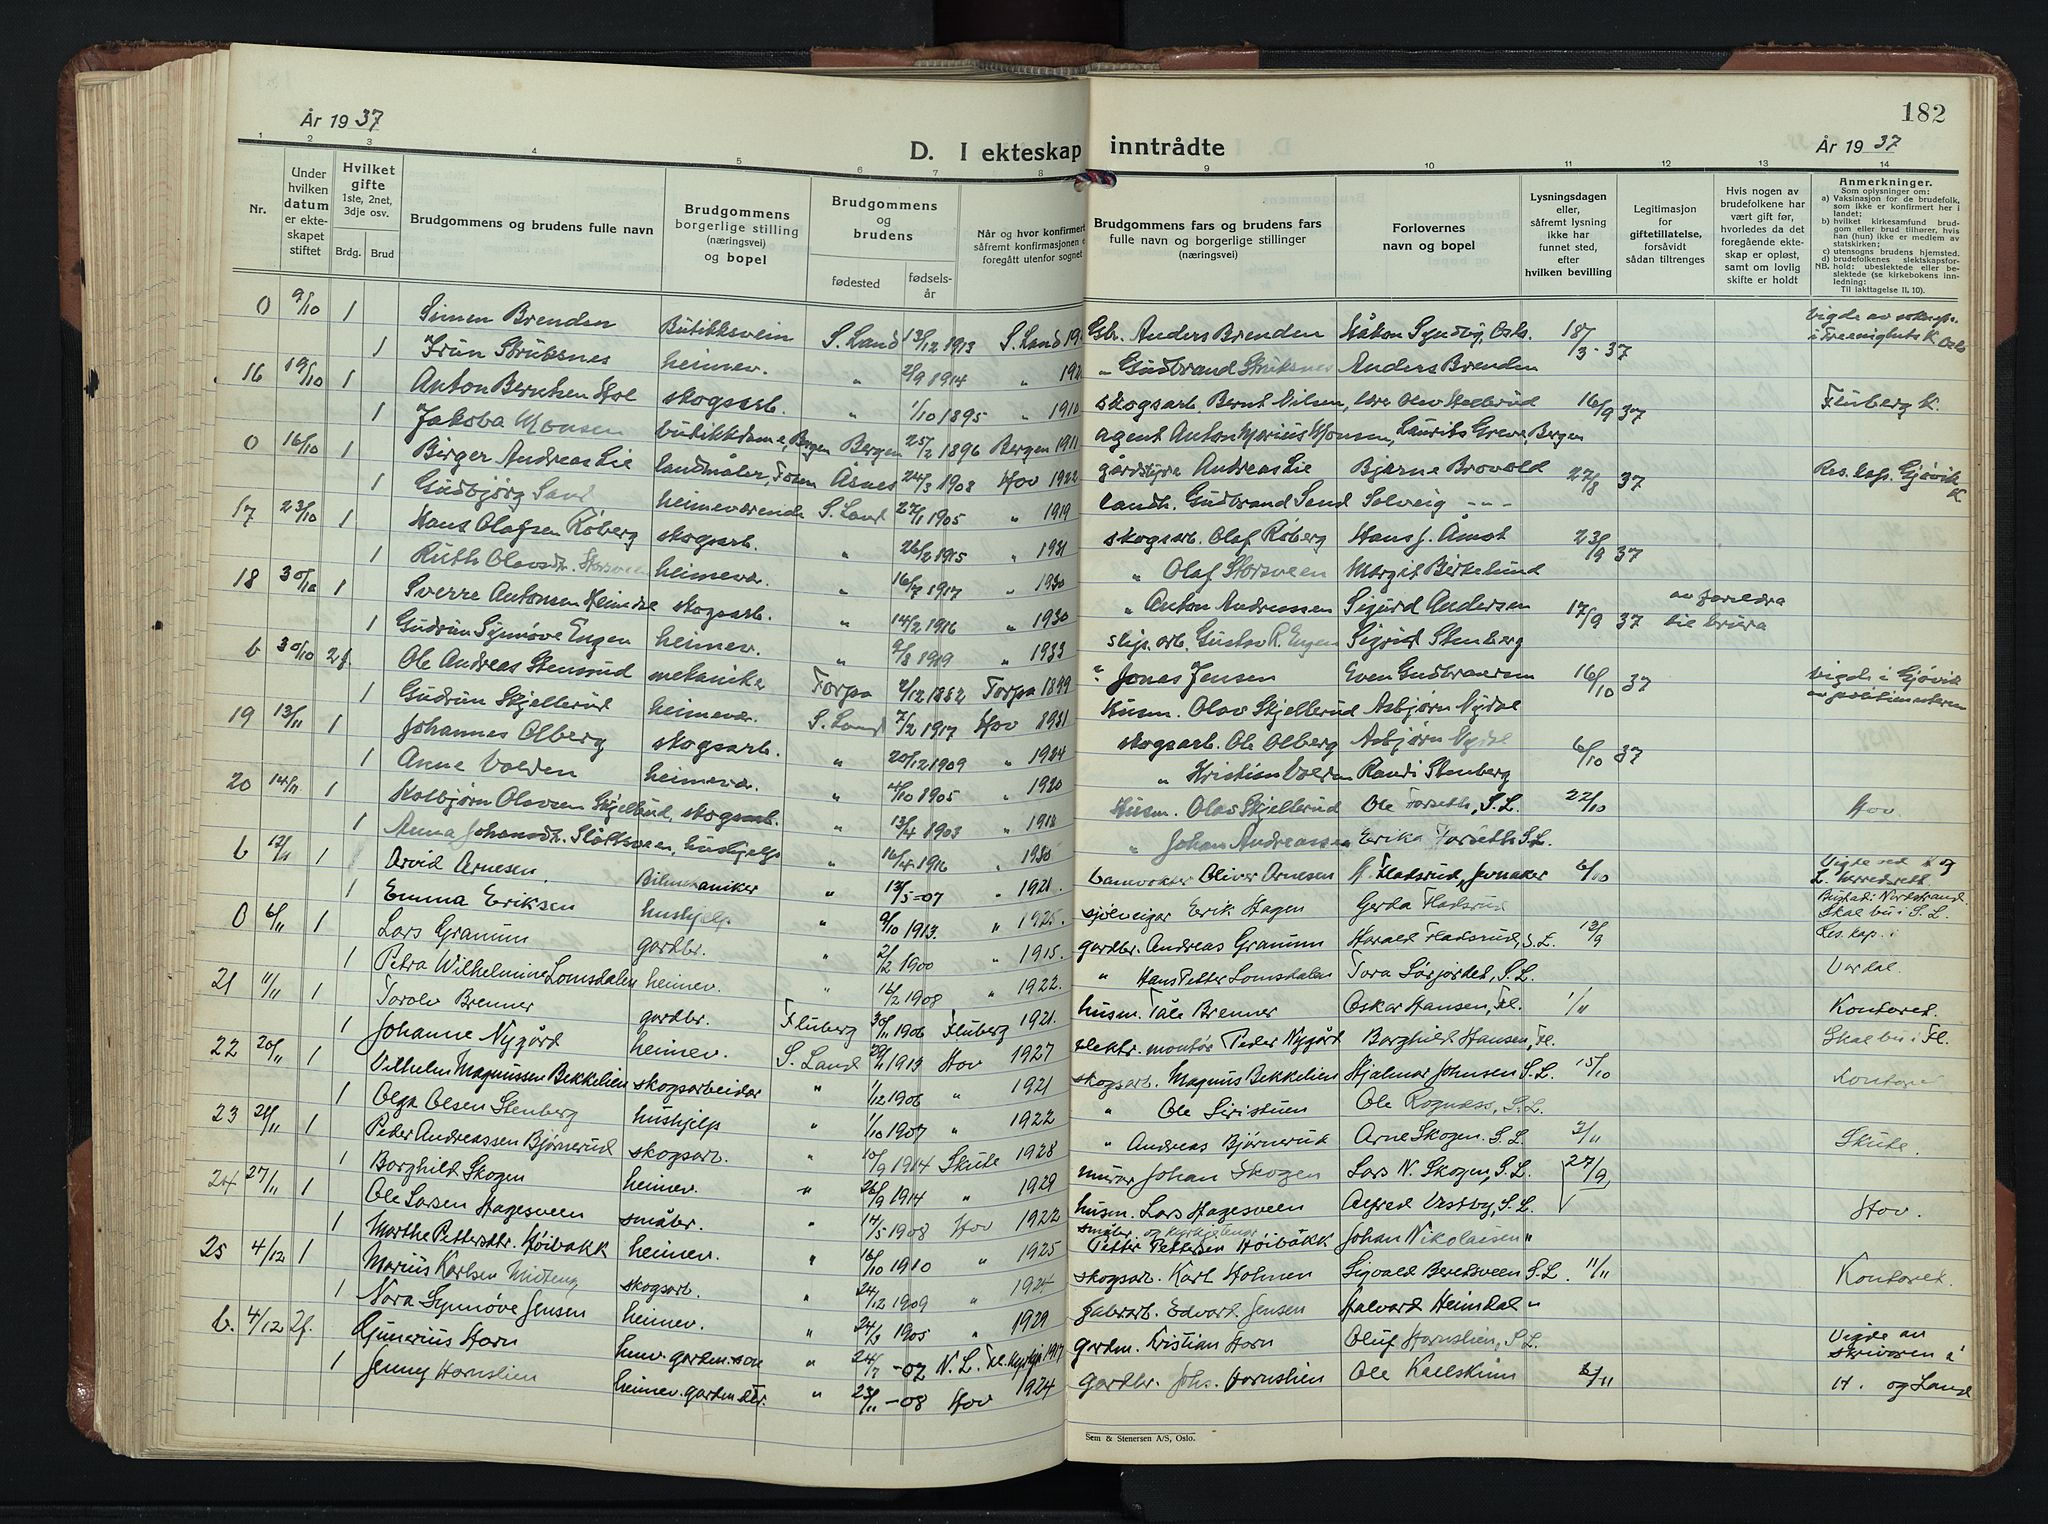 År 1937
182
D. I ekteskap inntrådte
År 1937
1 2 3 4 5 6 7 8 9 10 11 12 13 14
Nr.
Under hvilken datum er ekteskapet stiftet
Hvilket gifte 1ste, 2net, 3dje osv.
Brdg. Brud
Brudgommens og brudens fulle navn
Brudgommens borgerlige stilling (næringsvei) og bopel
Brudgommens og brudens
fødested
fødselsår
Når og hvor konfirmert
såfremt konfirmasjonen
foregått utenfor sognet
Brudgommens fars og brudens fars
fulle navn og borgerlige stillinger
(næringsvei)
Forlovernes
navn og bopel
Lysningsdagen eller, såfremt lysning ikke har funnet sted, efter hvilken bevilling
Legitimasjon for giftetillatelse, forsåvidt sådan tiltrenges
Hvis nogen av brudefolkene har vært gift før, hvorledes da det foregående ekteskap er opløst, samt om lovlig skifte er holdt
Anmerkninger.
Som oplysninger om:
a) Vaksinasjon for de brudefolk, som ikke er konfirmert her i landet;
b) hvilket kirkesamfund brudgom eller brud tilhører, hvis han (hun) ikke er medlem av statskirken;
c) utensogns brudens hjemsted.
d) brudefolkenes slektskapsforhold: ubeslektede eller beslektede (se kirkebokens innledning:
NB. Til iakttagelse II, 10).
0 9/10 1 Simen Brenden Butikksvein S. Land 13/12 1913 S. Land Gbr. Anders Brenden Håkon Syndby, Oslo. 18/3-37
1 Heimev. " 2/9 1914 " " Gudbrand Struksnes Anders Brenden
16 19/10 1 Anton Berntsen Hol skogsarb. " 1/10 1895 " 1910 skogsarb. Bernt Nilsen, 16/9 37 Fluberg K.
1 Jakoba Monsen butikkdame, Bergen Bergen 25/2 1896 Bergen 1911 agent Anton Marius Monsen, Laurits Greve, Bergen
0 16/10 1 Birger Andreas Lie landmåler, Åsnes 24/3 1908 Hov 1922 Andreas Lie Bjarne Brovold 27/8 37 Res. kap. Gjøvik K
1 Gudbjørg Sand heimeværende S. Land 27/1 1905 " 1919 landh. Gudbrand Sand Solveig - - -
17 23/10 1 Hans Olafsen Røberg skogsarb. " 26/2 1915 " 1931 skogsarb. Olaf Røberg Hans J. Åmot 23/9 37
1 Ruth Olavsdtr. Storsveen heimevær. " 16/7 1917 " 1930 " Olaf Storsveen Margit Birkelund
18 30/10 1 Sverre Antonsen skogsarb. " 14/2 1916 " 1930 " Anton Andreassen Sigurd Andersen 17/9 37 av foreldra til brura
1 Gudrun Synnøve Engen heimev. " 9/8 1919 " 1933 Gustav R. Engen Sigrid Stenberg
b 30/10 2f. Ole Andreas Stensrud mekaniker Torpa 2/12 1882 Torpa 1899 " Jonas Jensen Even Gudbransen 16/10 37 Vigde i Gjøvik
1 Gudrun Skjellerud heimevær. S. Land 7/2 1917 Hov 1931 Husm. Olav Skjellerud Asbjørn Nydal
19 13/11 1 Johannes Olberg skogsarb. " 20/12 1909 " 1924 skogsarb. Ole Olberg Asbjørn Nydal 6/10 37
1 Anne Volden heimevær. " 4/10 1905 " 1920 " Kristian Volden Randi Stenberg
20 14/11 1 Kolbjørn Olavsen Skjellerud, skogsarb. " 13/4 1903 " 1918 Husm. Olav Skjellerud Ole Forseth, S.L. 22/10 Hov
1 Anna Johansdtr. Slåttsveen, hushjelp " 16/4 1916 " 1930 " Johan Andreassen Erika Forseth S.L.
b 12/11 1 Arvid Arnesen. Bilmekaniker " 13/5-07 " 1921. banevokter Oliver Arnesen Fladsrud, Jevnaker 6/10
1 Emma Eriksen hushjelp " 9/10 1913. " 1925. sjølveigar Erik Hagen Gerda Fladsrud Skal bu i S.L.
0 6/11 1 Lars Granum gardbr. " 2/2 1900 " 1915. gardbr. Andreas Granum Harald Fladsrud, S.L. 12/9 Res. kap. i
1 Petra Wilhelmine Lomsdalen heimev. " 16/2 1908 " 1922. " Hans Petter Lomsdalen Tora Sørjordet, S.L. Vardal.
21 11/11 1 Torolv Brenner gardbr. Fluberg 30/11 1906 Fluberg 1921. husm. Tåle Brenner Oskar Hansen, Fl. 1/11 Kontoret.
1 Johanne Nygård heimev. S. Land 29/11 1913 Hov 1927 elektr. montør Peder Nygård Borghild Hansen, Fl. Skal bu i Fl.
22 20/11 1 Vilhelm Magnussen Bekkelien skogsarbeidar " 1/12 1906 " 1921 skogsarb. Magnus Bekkelien Hjalmar Johnsen S.L. 15/10 Kontoret
1 Olga Olsen Stenberg hushjelp " 1/10 1907 " 1922 " Ole Siristuen Ole Rognås, S.L.
23 21/11 1 Peder Andreassen Bjørnerud skogsarb. " 10/9 1914 Skute 1928 " Andreas Bjørnerud Arne Skogen. S.L. 2/11 Skute.
1 Borghild Skogen heimev. " 26/9 1914 " 1929 murar Johan Skogen Lars N. Skogen, S.L. 27/9
24 27/11 1 Ole Larsen Hagesveen småbr. " 14/5 1908 Hov 1922 husm. Lars Hagesveen Alfred Vestby, S.L. Hov.
1 Marthe Pettersdtr. Høibakk heimev. " 16/10 1910 " 1925 småbr. og kyrkjetenar Petter Pettersen Høibakk Johan Nikolaisen "
25 4/12 1 Marius Karlsen Midteng skogsarb. " 24/12 1909 " 1924 skogsarb. Karl Holmen Sigvald Beretsveen S.L. 11/11 Kontoret.
1 Nora Synnøve Jensen heimev. " 24/3 1905 " 1929 fabrarb. Edvard Jensen Halvard Heimdal "
b. 4/12 2f. Gunerius Horn heimv. gardm. son " 24/7 -02 N.L. Fl. kyrkje 1917 gardm. Kristian Horn Oluf Hornslien, S.L. Vigde av skrivaren i
1 Jenny Hornslien heimev. gardm. dtr. " 23/11 -08 Hov 1924 gardbr. Johs. Hornslien Ole Kallskin 6/11 H. og Land
Sem & Stenersen A/S, Oslo.